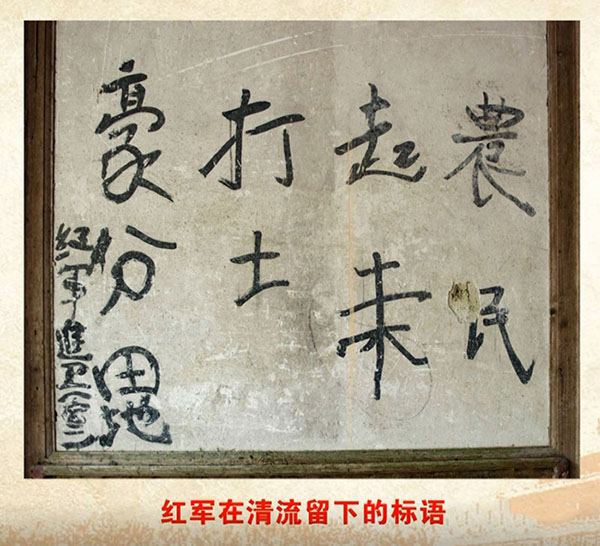 農民
起来
打土
豪分田地
红军進
红军在清流留下的标语